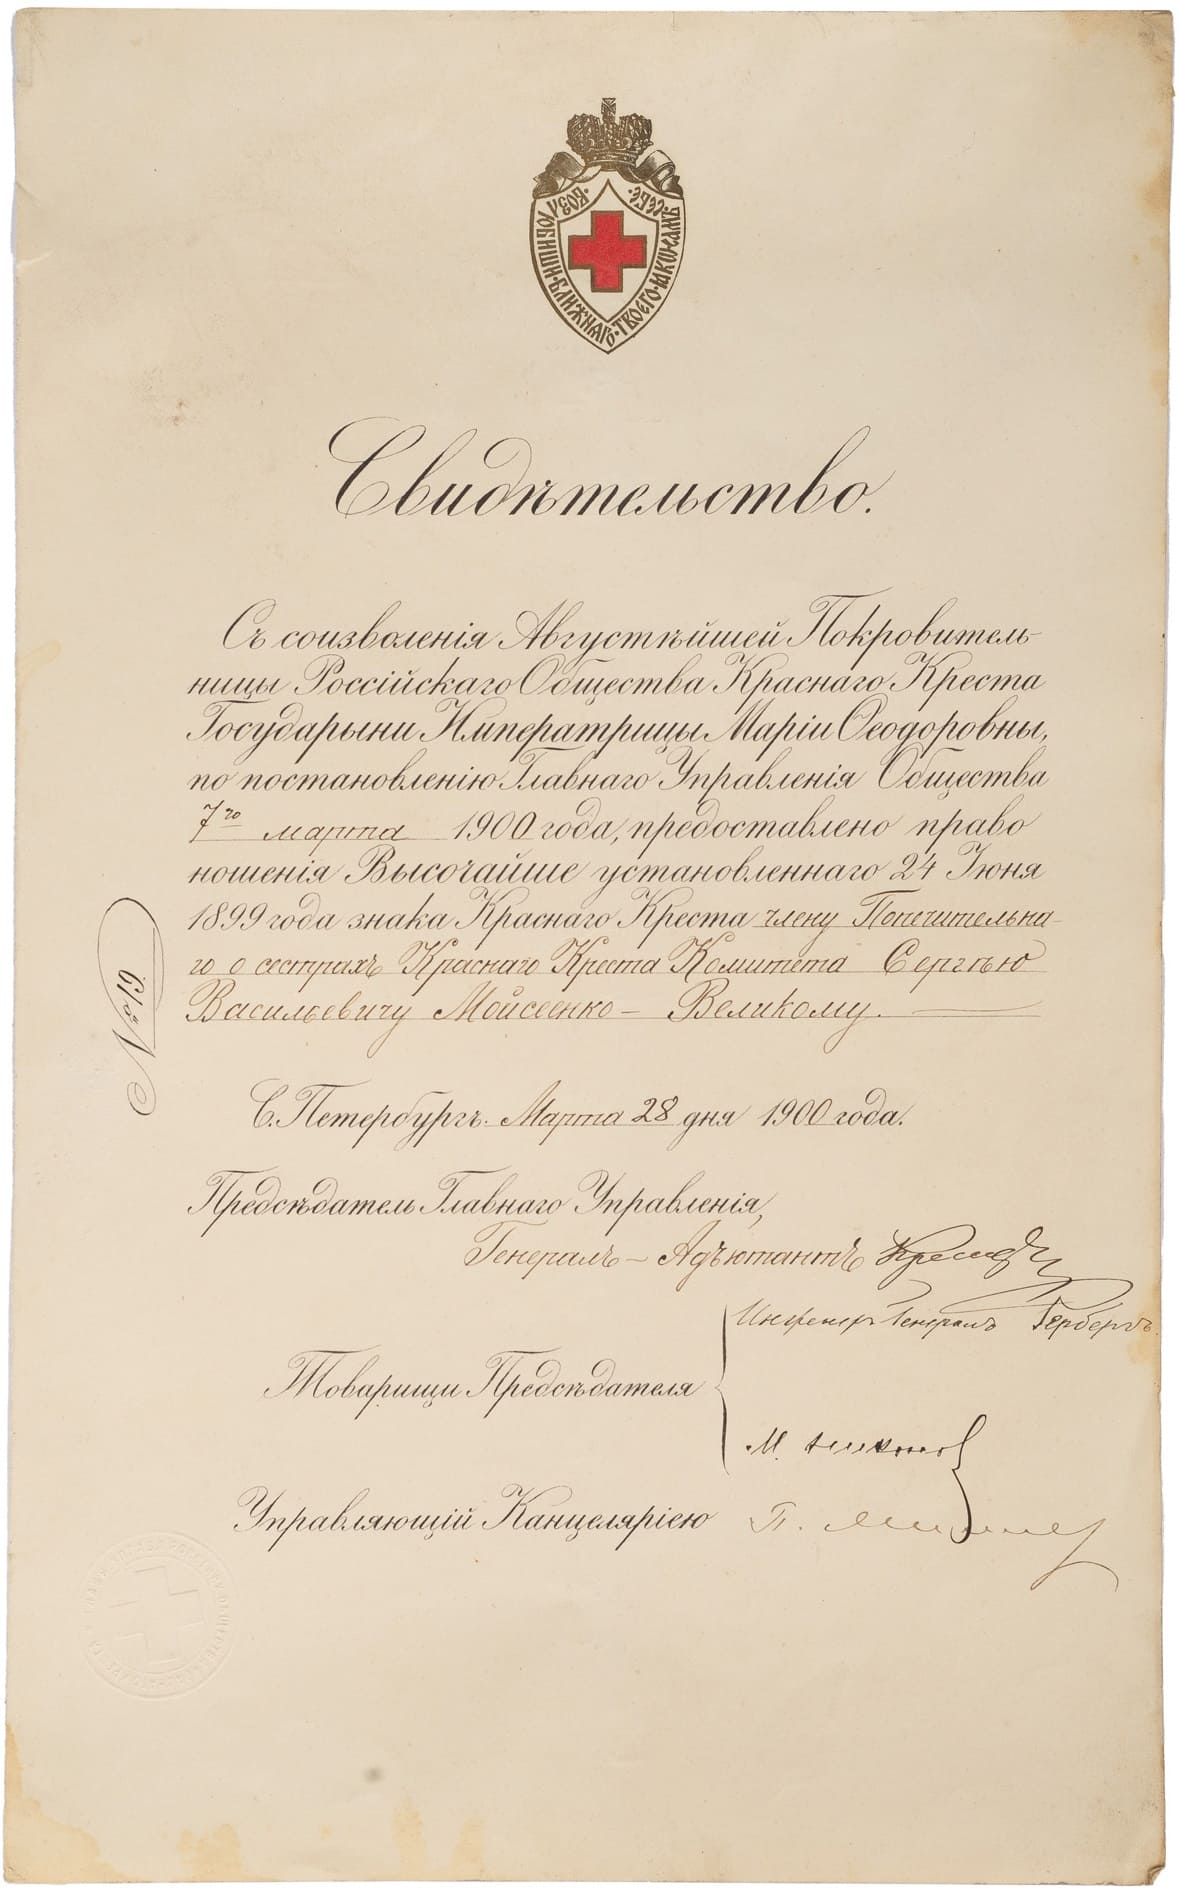 ВОЗЛЮБИШИ·БЛИЖНЯГО·ТВОЕГО·ЯКО·САМЪ·СЕБЕ.
Свидѣтельство.
Съ соизволенія Августѣйшей Покровитель-
ницы Россійскаго Общества Краснаго Креста
Государыни Императрицы Маріи Ѳеодоровны,
по постановленію Главнаго Управленія Общества
7го марта 1900 года, предоставлено право
ношенія Высочайше установленнаго 24 Іюня
1899 года знака Краснаго Креста члену Попечительна-
го о сестрахъ Краснаго Креста Комитета Сергѣю
Васильевичу Мойсеенко – Великому.
№ 613
С. Петербургъ. Марта 28 дня 1900 года.
Предсѣдатель Главнаго Управленія,
Генералъ – Адъютантъ
Инженеръ Генералъ Герберъ
Товарищи Предсѣдателя
М.
Управляющій Канцеляріею П.